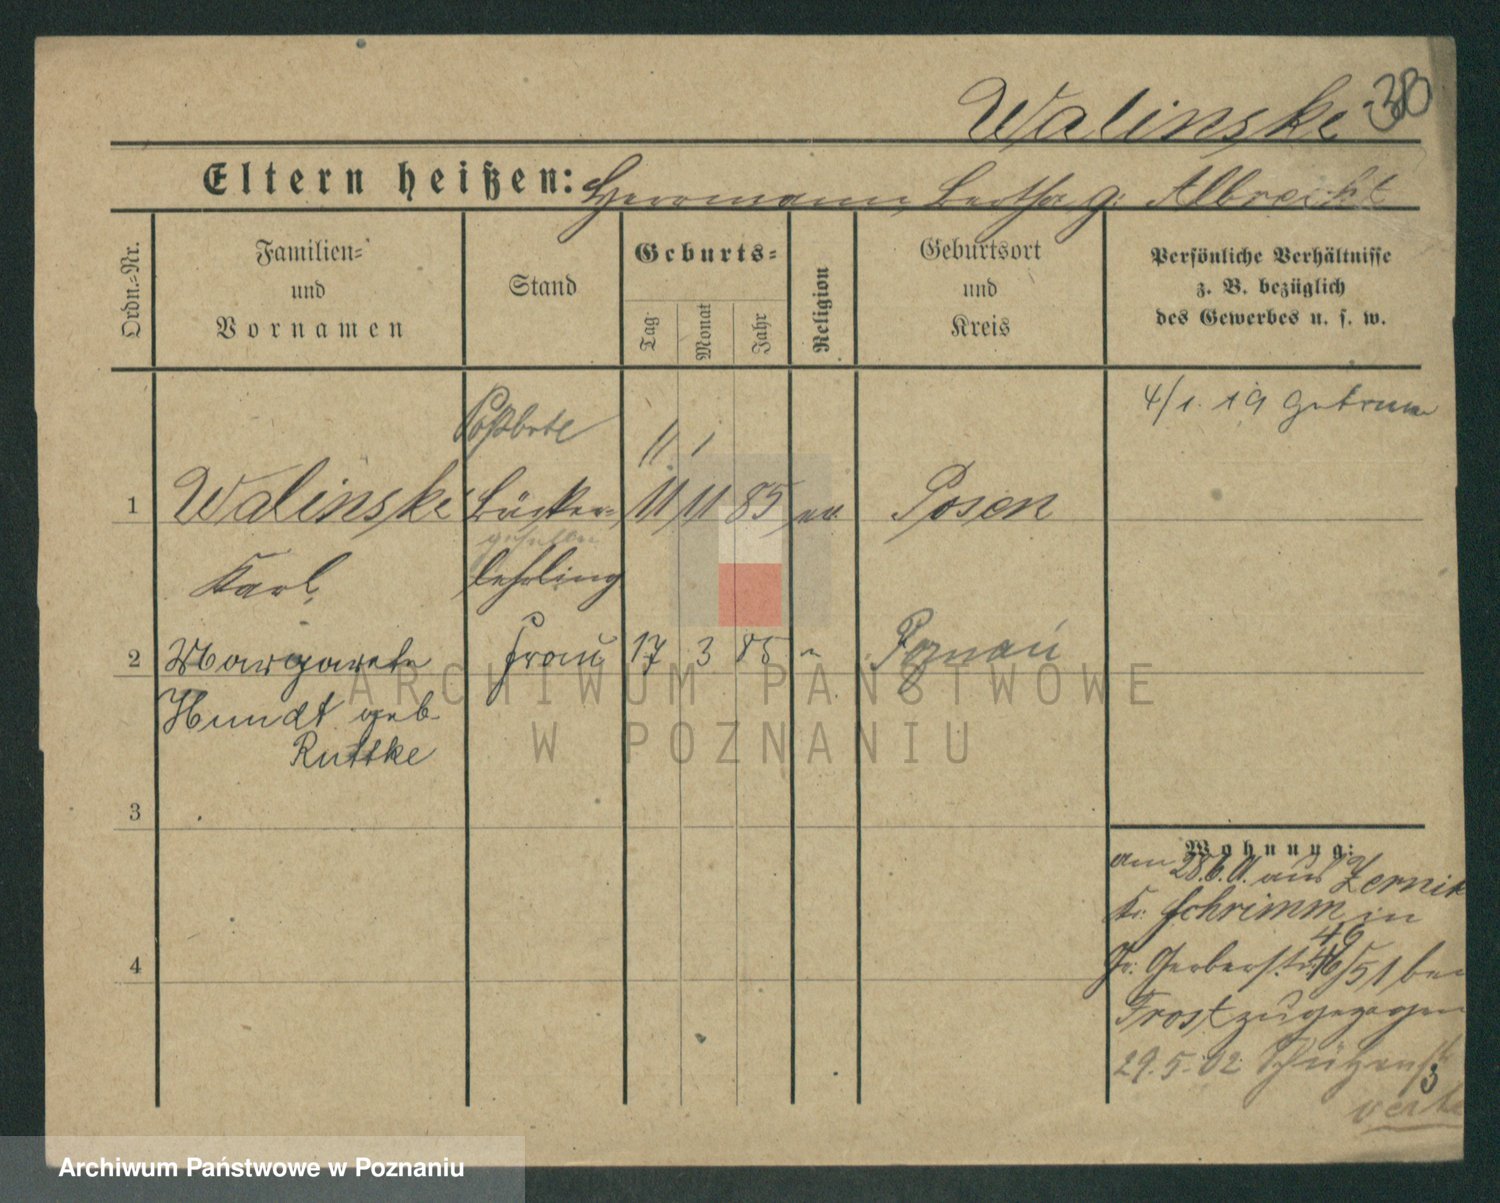 Walinske 38
Eltern heißen: Herrmann, Bertha g. Albrecht
Ordn.-Nr.
Familien-
und
Vornamen
Stand
Geburts-
Tag
Monat
Jahr
Religion
Geburtsort
und
Kreis
Persönliche Verhältnisse
z. B. bezüglich
des Gewerbes u. s. w.
4/1. 19 getraut
Postbote
11 1
1 Walinske Bäcker- 11 11 85 ev. Posen
gesellen
Karl, lehrling
2 Margarete Frau 17 3 85 " Poznań
Hundt geb.
Ruttke
3
4
Wohnung:
am 28.6.01. aus Zernik
Kr. Schrimm in
46
Gr. Gerberstr. 46/51 bei
Frost zugezogen
29.5.02 Schützenstr
3
ARCHIWUM PAŃSTWOWE
W POZNANIU
Archiwum Państwowe w Poznaniu